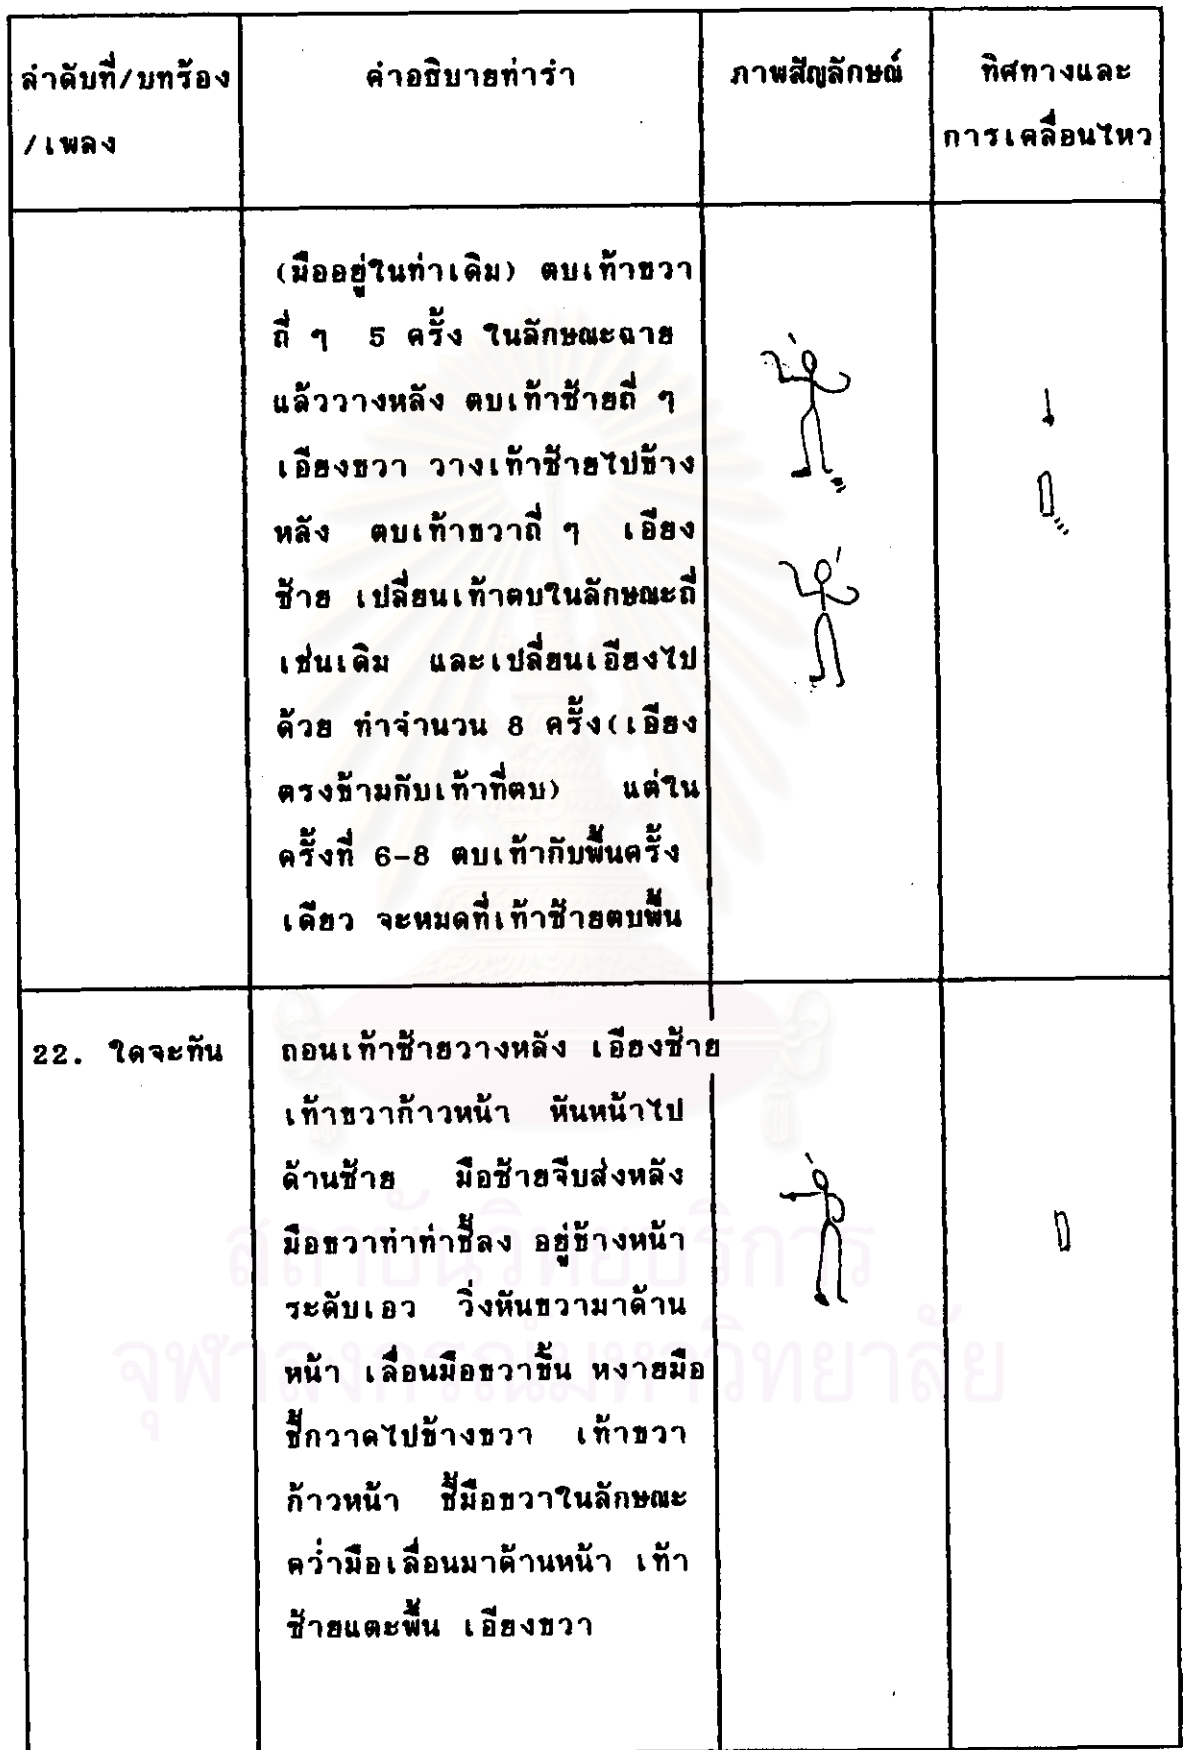 ลำดับที่/บทร้อง
/เพลง
คำอธิบายท่ารำ
ภาพสัญลักษณ์
ทิศทางและ
การเคลื่อนไหว
(มืออยู่ในท่าเดิม) ตบเท้าขวา
ถี่ ๆ 5 ครั้ง ในลักษณะฉาย
แล้ววางหลัง ตบเท้าซ้ายถี่ ๆ
เอียงขวา วางเท้าซ้ายไปข้าง
หลัง ตบเท้าขวาถี่ ๆ เอียง
ซ้าย เปลี่ยนเท้าตบในลักษณะถี่
เช่นเดิม และเปลี่ยนเอียงไป
ด้วย ทำจำนวน 8 ครั้ง(เอียง
ตรงข้ามกับเท้าที่ตบ) แต่ใน
ครั้งที่ 6-8 ตบเท้ากับพื้นครั้ง
เดียว จะหมดที่เท้าซ้ายตบพื้น
22. ใดจะทัน
ถอนเท้าซ้ายวางหลัง เอียงซ้าย
เท้าขวาก้าวหน้า หันหน้าไป
ด้านซ้าย มือซ้ายจีบส่งหลัง
มือขวาทำท่าชี้ลง อยู่ข้างหน้า
ระดับเอว วิ่งหันขวามาด้าน
หน้า เลื่อนมือขวาขึ้น หงายมือ
ชี้กวาดไปข้างขวา เท้าขวา
ก้าวหน้า ชี้มือขวาในลักษณะ
คว่ำมือเลื่อนมาด้านหน้า เท้า
ซ้ายแตะพื้น เอียงขวา
สถาบันวิทยบริการ
จุฬาลงกรณ์มหาวิทยาลัย